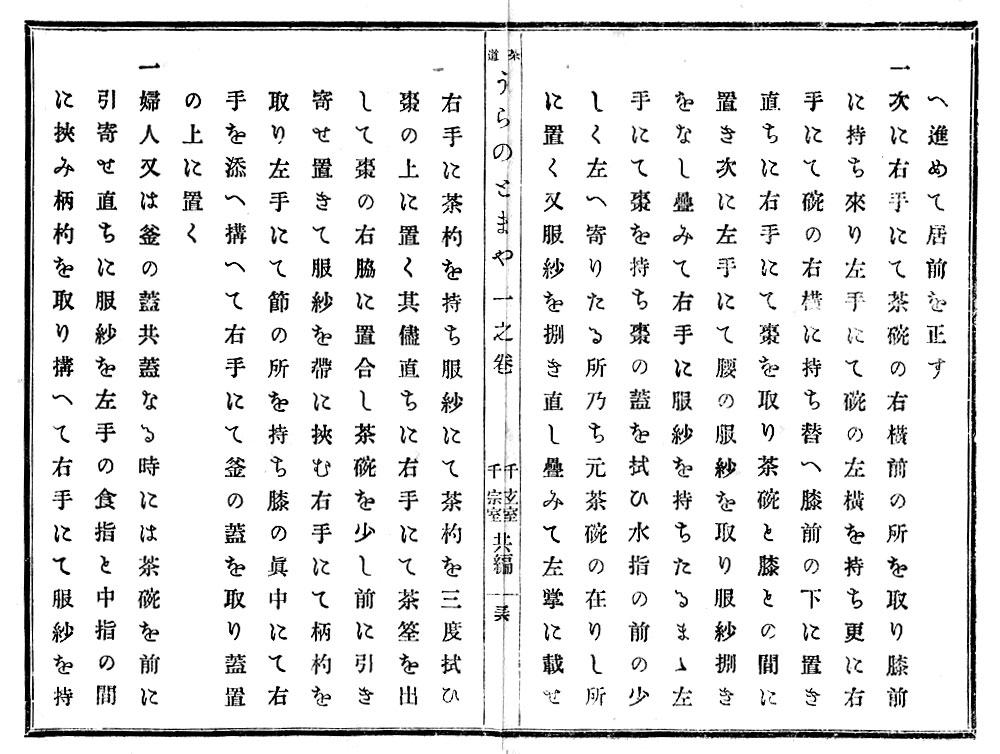 へ進めて居前を正す
一次に右手にて茶碗の右橫前の所を取り膝前
に持ち來り左手にて碗の左橫を持ち更に右
手にて碗の右橫に持ち替へ膝前の下に置き
直ちに右手にて棗を取り茶碗と膝との間に
置き次に左手にて腰の服紗を取り服紗捌き
をなし疊みて右手に服紗を持ちたるまゝ左
手にて棗を持ち棗の蓋を拭ひ水指の前の少
しく左へ寄りたる所乃ち元茶碗の在りし所
に置く又服紗を捌き直し疊みて左掌に載せ
茶道 うらのとまや 一之卷 千玄室 千宗室 共編
右手に茶杓を持ち服紗にて茶杓を三度拭ひ
棗の上に置く其儘直ちに右手にて茶筌を出
して棗の右脇に置合し茶碗を少し前に引き
寄せ置きて服紗を帶に挾む右手にて柄杓を
取り左手にて節の所を持ち膝の眞中にて右
手を添へ搆へて右手にて釜の蓋を取り蓋置
の上に置く
一婦人又は釜の蓋共蓋なる時には茶碗を前に
引寄せ直ちに服紗を左手の食指と中指の間
に挾み柄杓を取り搆へて右手にて服紗を持